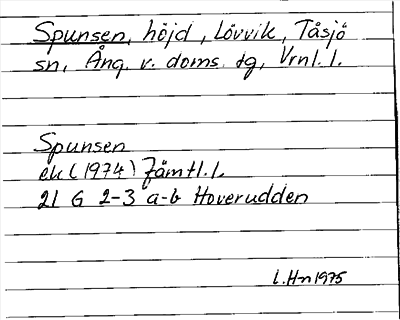 Spunsen, höjd, Lövvik, Tåsjö
sn, Ång. v. doms. tg, Vrnl. l.
Spunsen
ek (1974) Jämtl. l.
21 G 2-3 a-b Hoverudden
L.Hn 1975